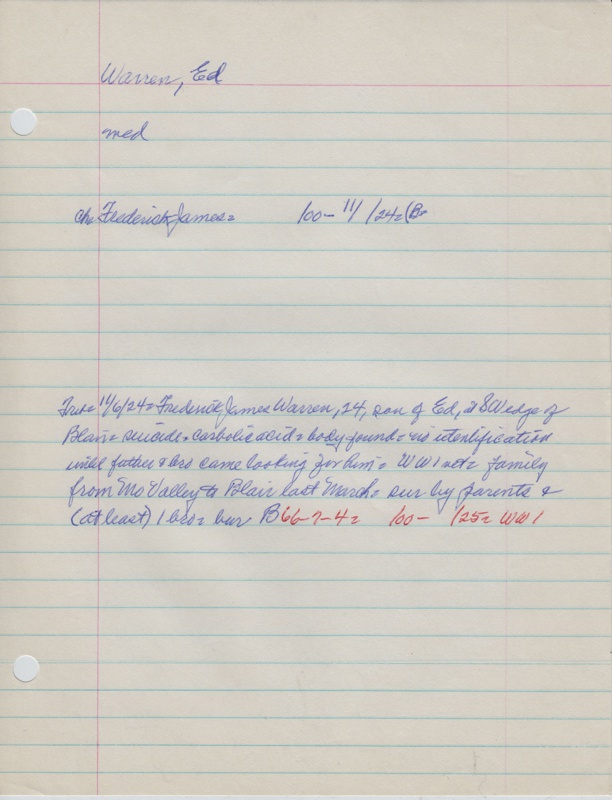 Warren, Ed
med
ch= Frederick James= 100- 11/ /24= (B=
11/6/24= Frederick James Warren, 24, son of Ed, at SW edge of
Blair= suicide= carbolic acid= body found= no identification
until father & bro came looking for him= WW1 vet= family
from Mo Valley to Blair last March= sur by parents &
(at least) 1 bro= bur B66-7-4= 100- /25= WW1